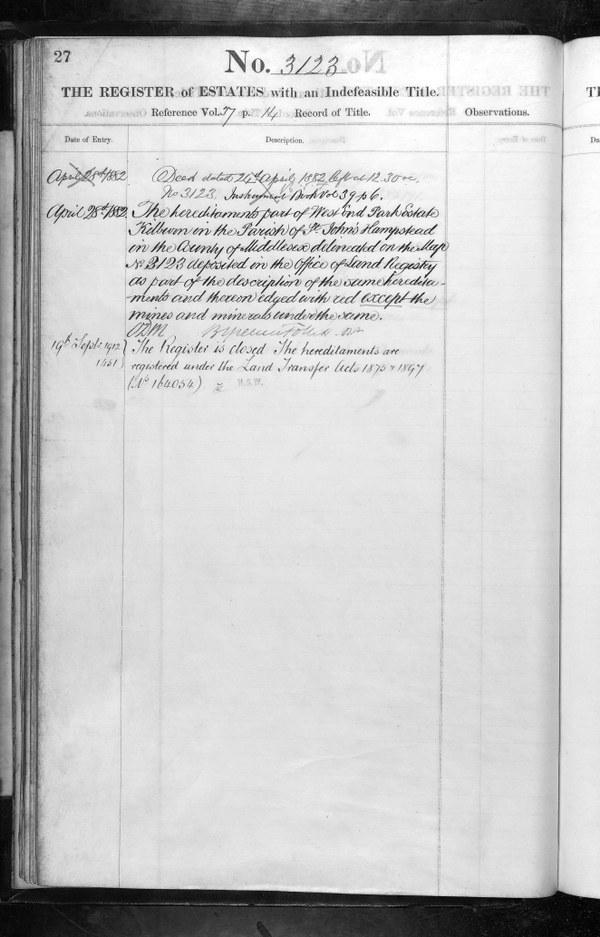 27
No. 3123
THE REGISTER of ESTATES with an Indefeasible Title.
Reference Vol. 57 p. 14 Record of Title. Observations.
Date of Entry. Description.
April 28th 1882 Deed dated 24th April 1882 left at 12.30
No 3123. Instrument Book Vol 39 p 6.
April 28th 1882. The hereditaments part of West End Park Estate
Kilburn in the Parish of St. John's Hampstead
in the County of Middlesex delineated on the Map
No 3123 deposited in the Office of Land Registry
as part of the description of the same heredita-
-ments and thereon edged with red except the
mines and minerals under the same.
19th Septr. 1912 The Register is closed The hereditaments are
1451 registered under the Land Transfer Acts 1875 & 1897
(No 164054)